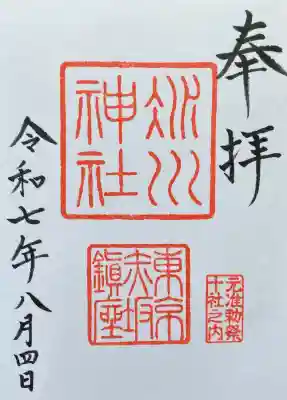 奉拝
氷川
神社
元准勅祭
十社之内
東京
赤坂
鎮座
令和七年八月四日